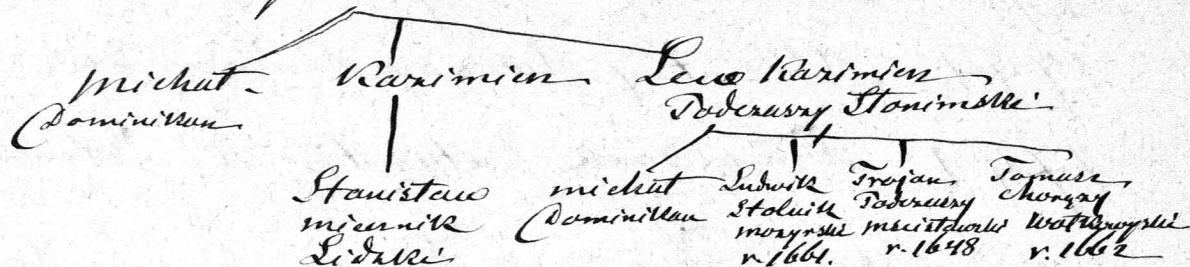 Michał
Dominikan
Kazimierz
Lew Kazimierz
Podczaszy Słonimski
Stanisław
miecznik
Lidzki
Michał
Dominikan
Ludwik
Stolnik
mozyrski
r. 1661.
Trojan
Podczaszy
mścisławski
r. 1648
Tomasz
Chorąży
Wołkowyski
r. 1662